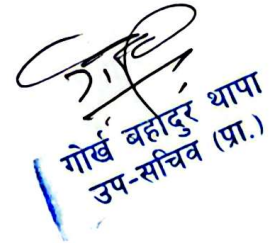 गोर्ख बहादुर थापा
उप-सचिव (प्रा.)